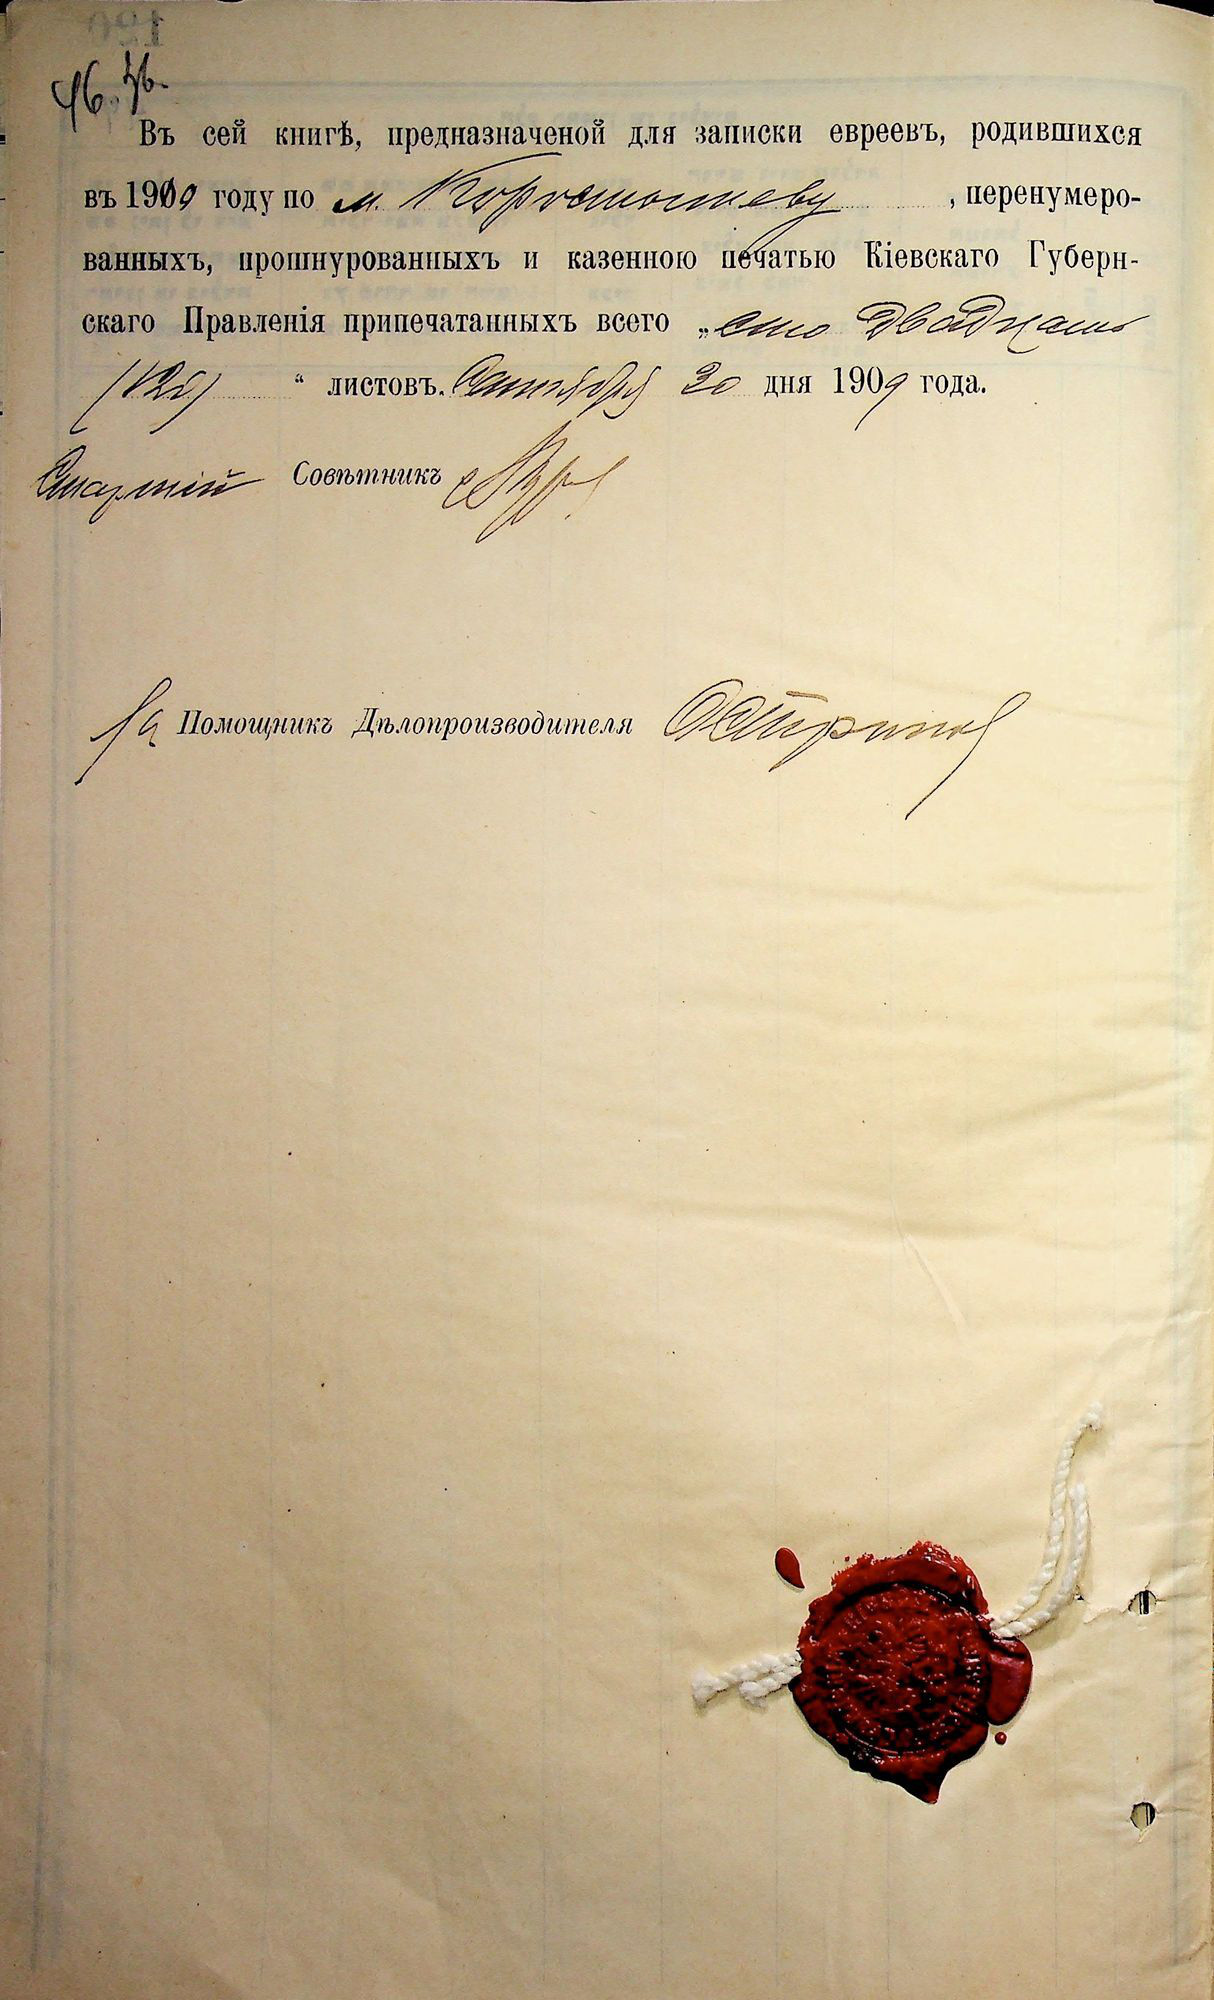 46. 46.
Въ сей книгѣ, предназначеной для записки евреевъ, родившихся
въ 1909 году по м. Коростышеву, перенумеро-
ванныхъ, прошнурованныхъ и казенною печатью Кіевскаго Губерн-
скаго Правленія припечатанныхъ всего „сто двадцать
(120) “ листовъ. Сентября 30 дня 1909 года.
Старшій Совѣтникъ
Помощникъ Дѣлопроизводителя